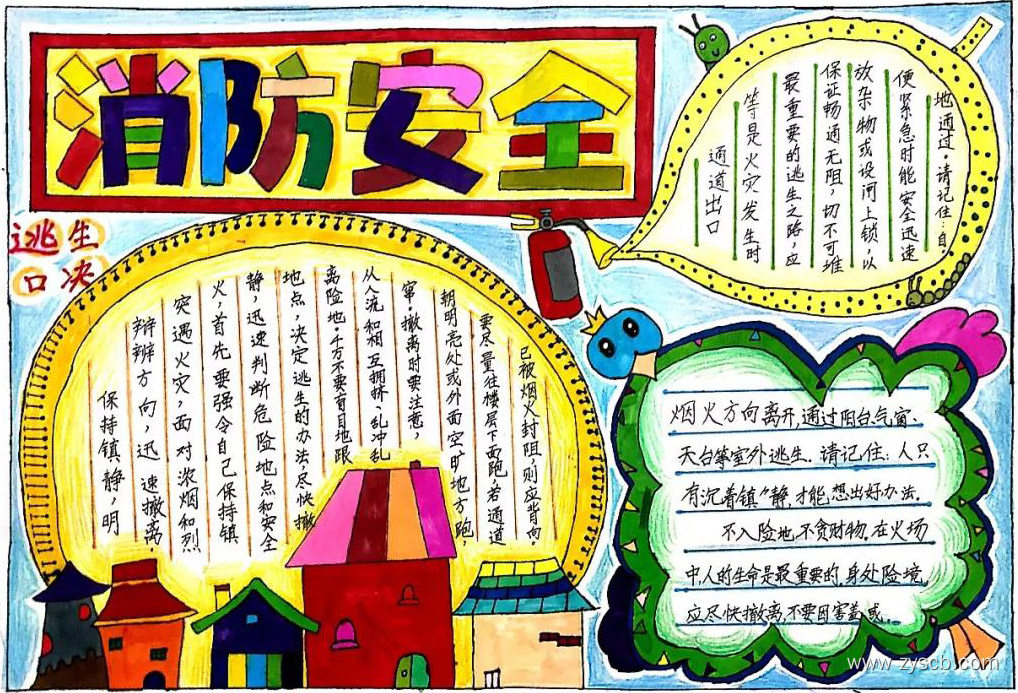 消防安全
逃生
口决
保持镇静,明
辩辩方向,迅速撤离.
突遇火灾,面对浓烟和烈
火,首先要强令自己保持镇
静,迅速判断危险地点和安全
地点,决定逃生的办法,尽快撤
离险地.千万不要盲目地跟
从人流和相互拥挤、乱冲乱
窜.撤离时要注意,
朝明亮处或外面空旷地方跑,
要尽量往楼层下面跑,若通道
已被烟火封阻,则应背向.
烟火方向离开,通过阳台、气窗、
天台等室外逃生.请记住:人只
有沉着镇静,才能想出好办法.
不入险地,不贪财物.在火场
中,人的生命是最重要的,身处险境,
应尽快撤离,不要因害羞或.
通道出口
等是火灾发生时
最重要的逃生之路,应
保证畅通无阻,切不可堆
放杂物或设闸上锁,以
便紧急时能安全迅速
地通过.请记住:自.
www.zyscb.com